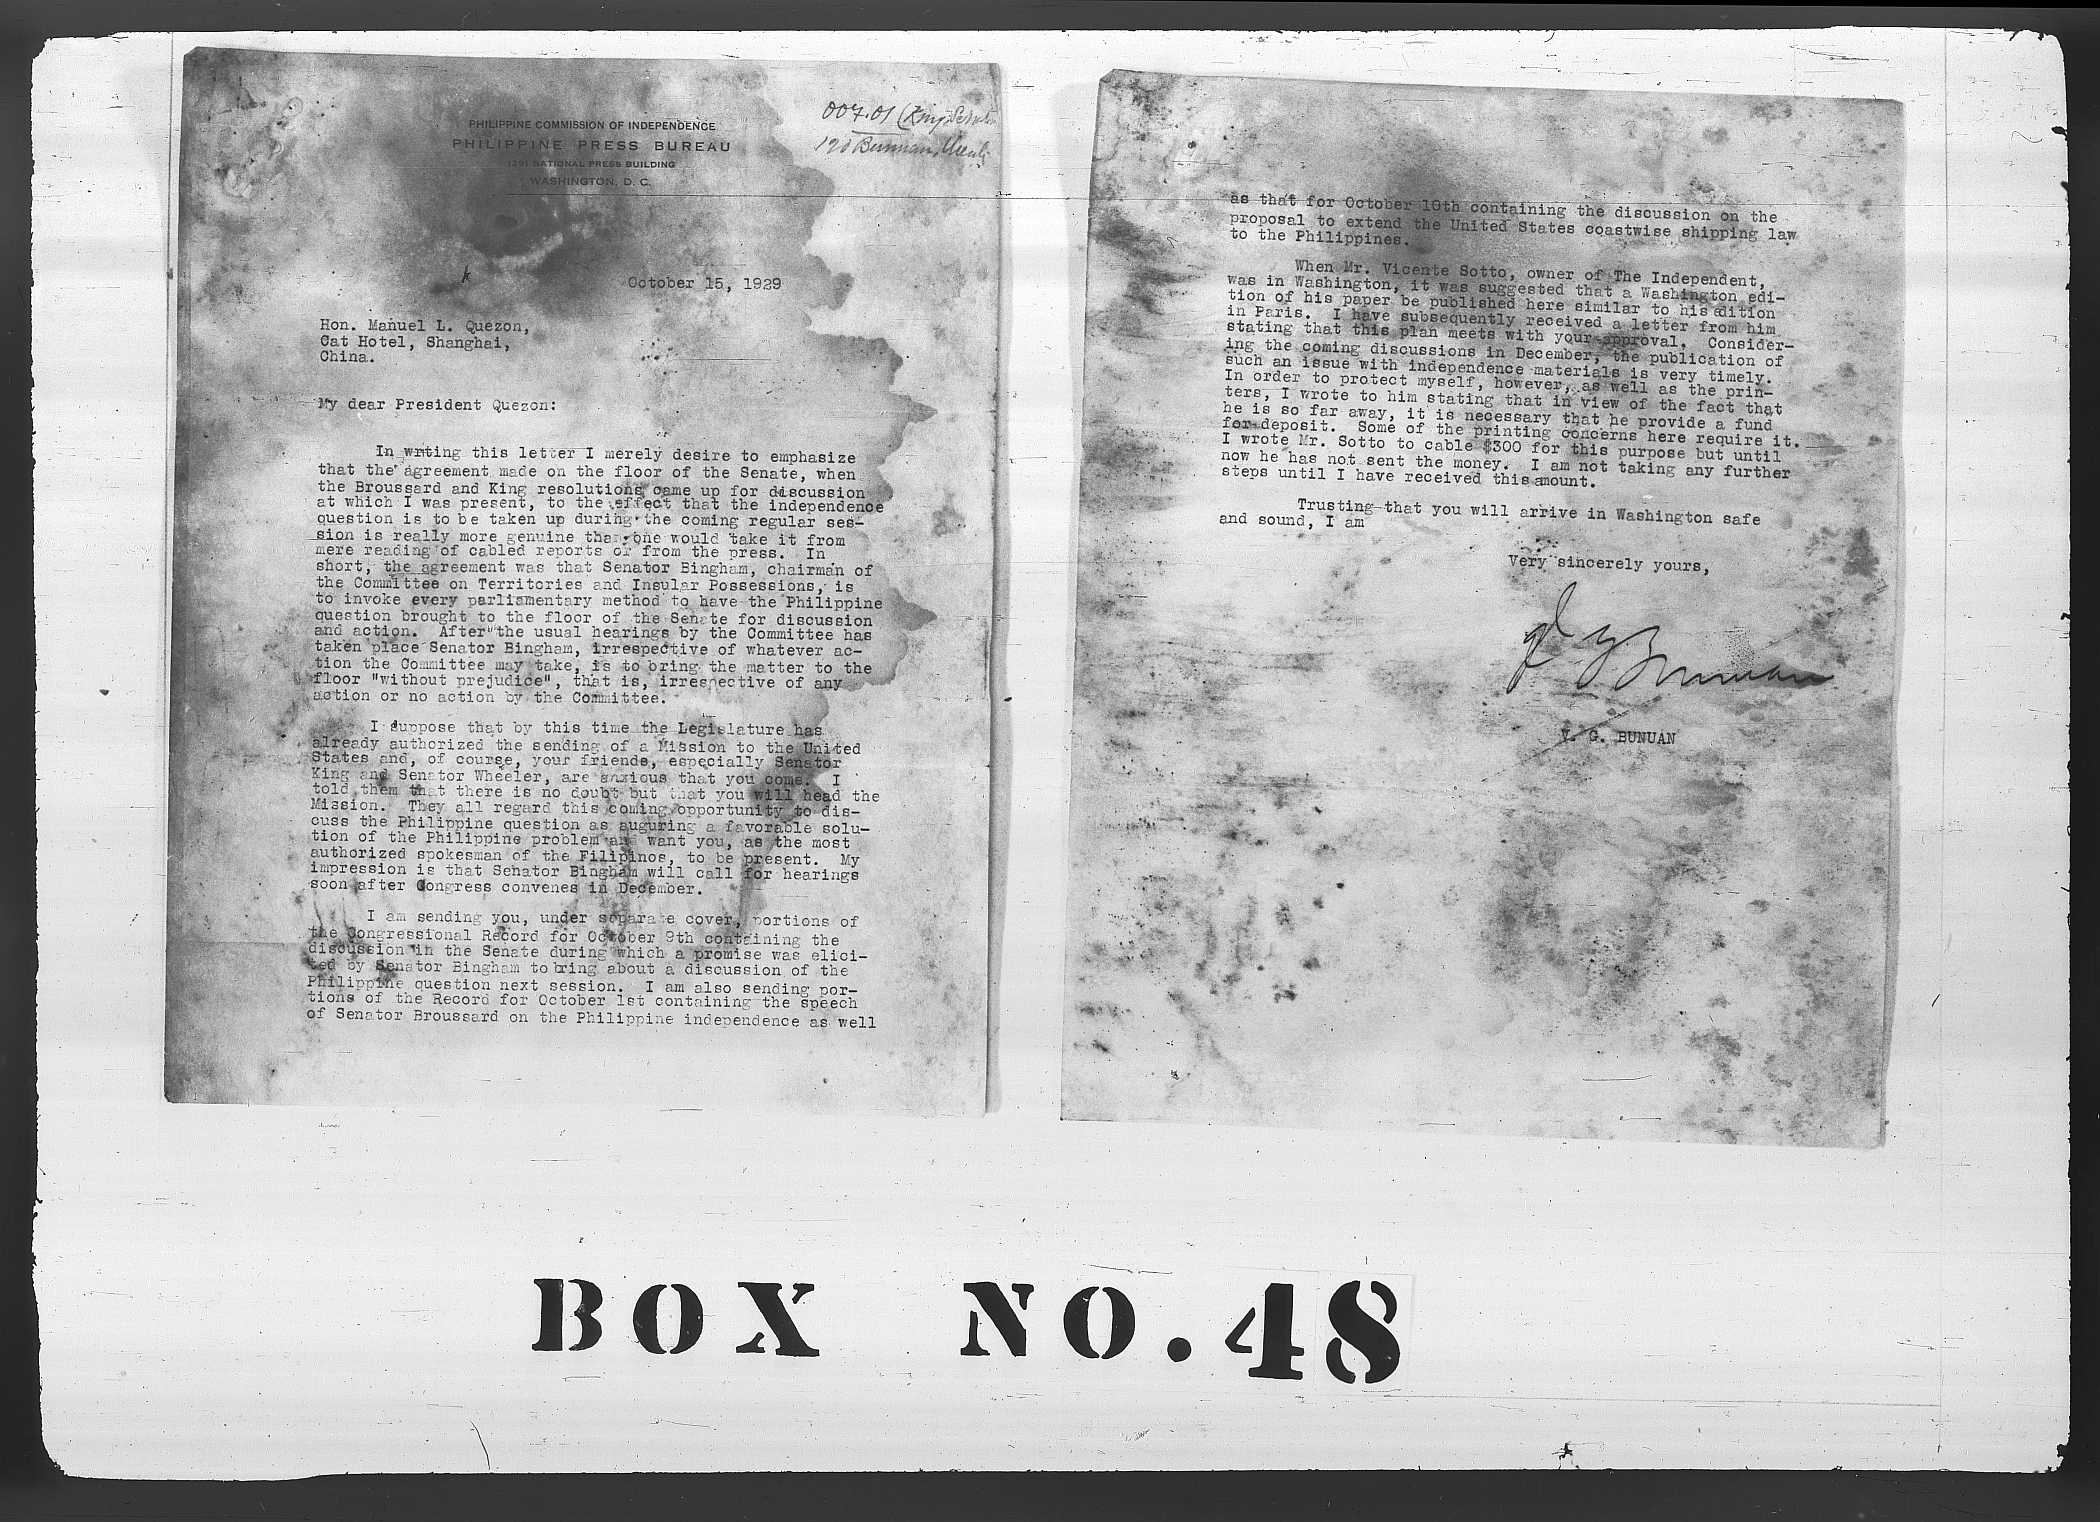 PHILIPPINE COMMISSION OF INDEPENDENCE
PHILIPPINE PRESS BUREAU
NATIONAL PRESS BUILDING
WASHINGTON, D. C.
007.01
Bunuan
October 15, 1929
Hon. Manuel L. Quezon,
Cat Hotel, Shanghai,
China.
My dear President Quezon:
In writing this letter I merely desire to emphasize
that the agreement made on the floor of the Senate, when
the Broussard and King resolutions came up for discussion
at which I was present, to the effect that the independence
question is to be taken up during the coming regular ses-
sion is really more genuine than one would take it from
mere reading of cabled reports or from the press. In
short, the agreement was that Senator Bingham, chairman of
the Committee on Territories and Insular Possessions, is
to invoke every parliamentary method to have the Philippine
question brought to the floor of the Senate for discussion
and action. After the usual hearings by the Committee has
taken place Senator Bingham, irrespective of whatever ac-
tion the Committee may take, is to bring the matter to the
floor "without prejudice", that is, irrespective of any
action or no action by the Committee.
I suppose that by this time the Legislature has
already authorized the sending of a Mission to the United
States and, of course, your friends, especially Senator
King and Senator Wheeler, are anxious that you come. I
told them that there is no doubt but that you will head the
Mission. They all regard this coming opportunity to dis-
cuss the Philippine question as auguring a favorable solu-
tion of the Philippine problem and want you, as the most
authorized spokesman of the Filipinos, to be present. My
impression is that Senator Bingham will call for hearings
soon after Congress convenes in December.
I am sending you, under separate cover, portions of
the Congressional Record for October 9th containing the
discussion in the Senate during which a promise was elici-
ted by Senator Bingham to bring about a discussion of the
Philippine question next session. I am also sending por-
tions of the Record for October 1st containing the speech
of Senator Broussard on the Philippine independence as well
as that for October 10th containing the discussion on the
proposal to extend the United States coastwise shipping law
to the Philippines.
When Mr. Vicente Sotto, owner of The Independent,
was in Washington, it was suggested that a Washington edi-
tion of his paper be published here similar to his edition
in Paris. I have subsequently received a letter from him
stating that this plan meets with your approval. Consider-
ing the coming discussions in December, the publication of
such an issue with independence materials is very timely.
In order to protect myself, however, as well as the prin-
ters, I wrote to him stating that in view of the fact that
he is so far away, it is necessary that he provide a fund
for deposit. Some of the printing concerns here require it.
I wrote Mr. Sotto to cable $300 for this purpose but until
now he has not sent the money. I am not taking any further
steps until I have received this amount.
Trusting that you will arrive in Washington safe
and sound, I am
Very sincerely yours,
V. G. Bunuan
V. G. BUNUAN
BOX NO. 48